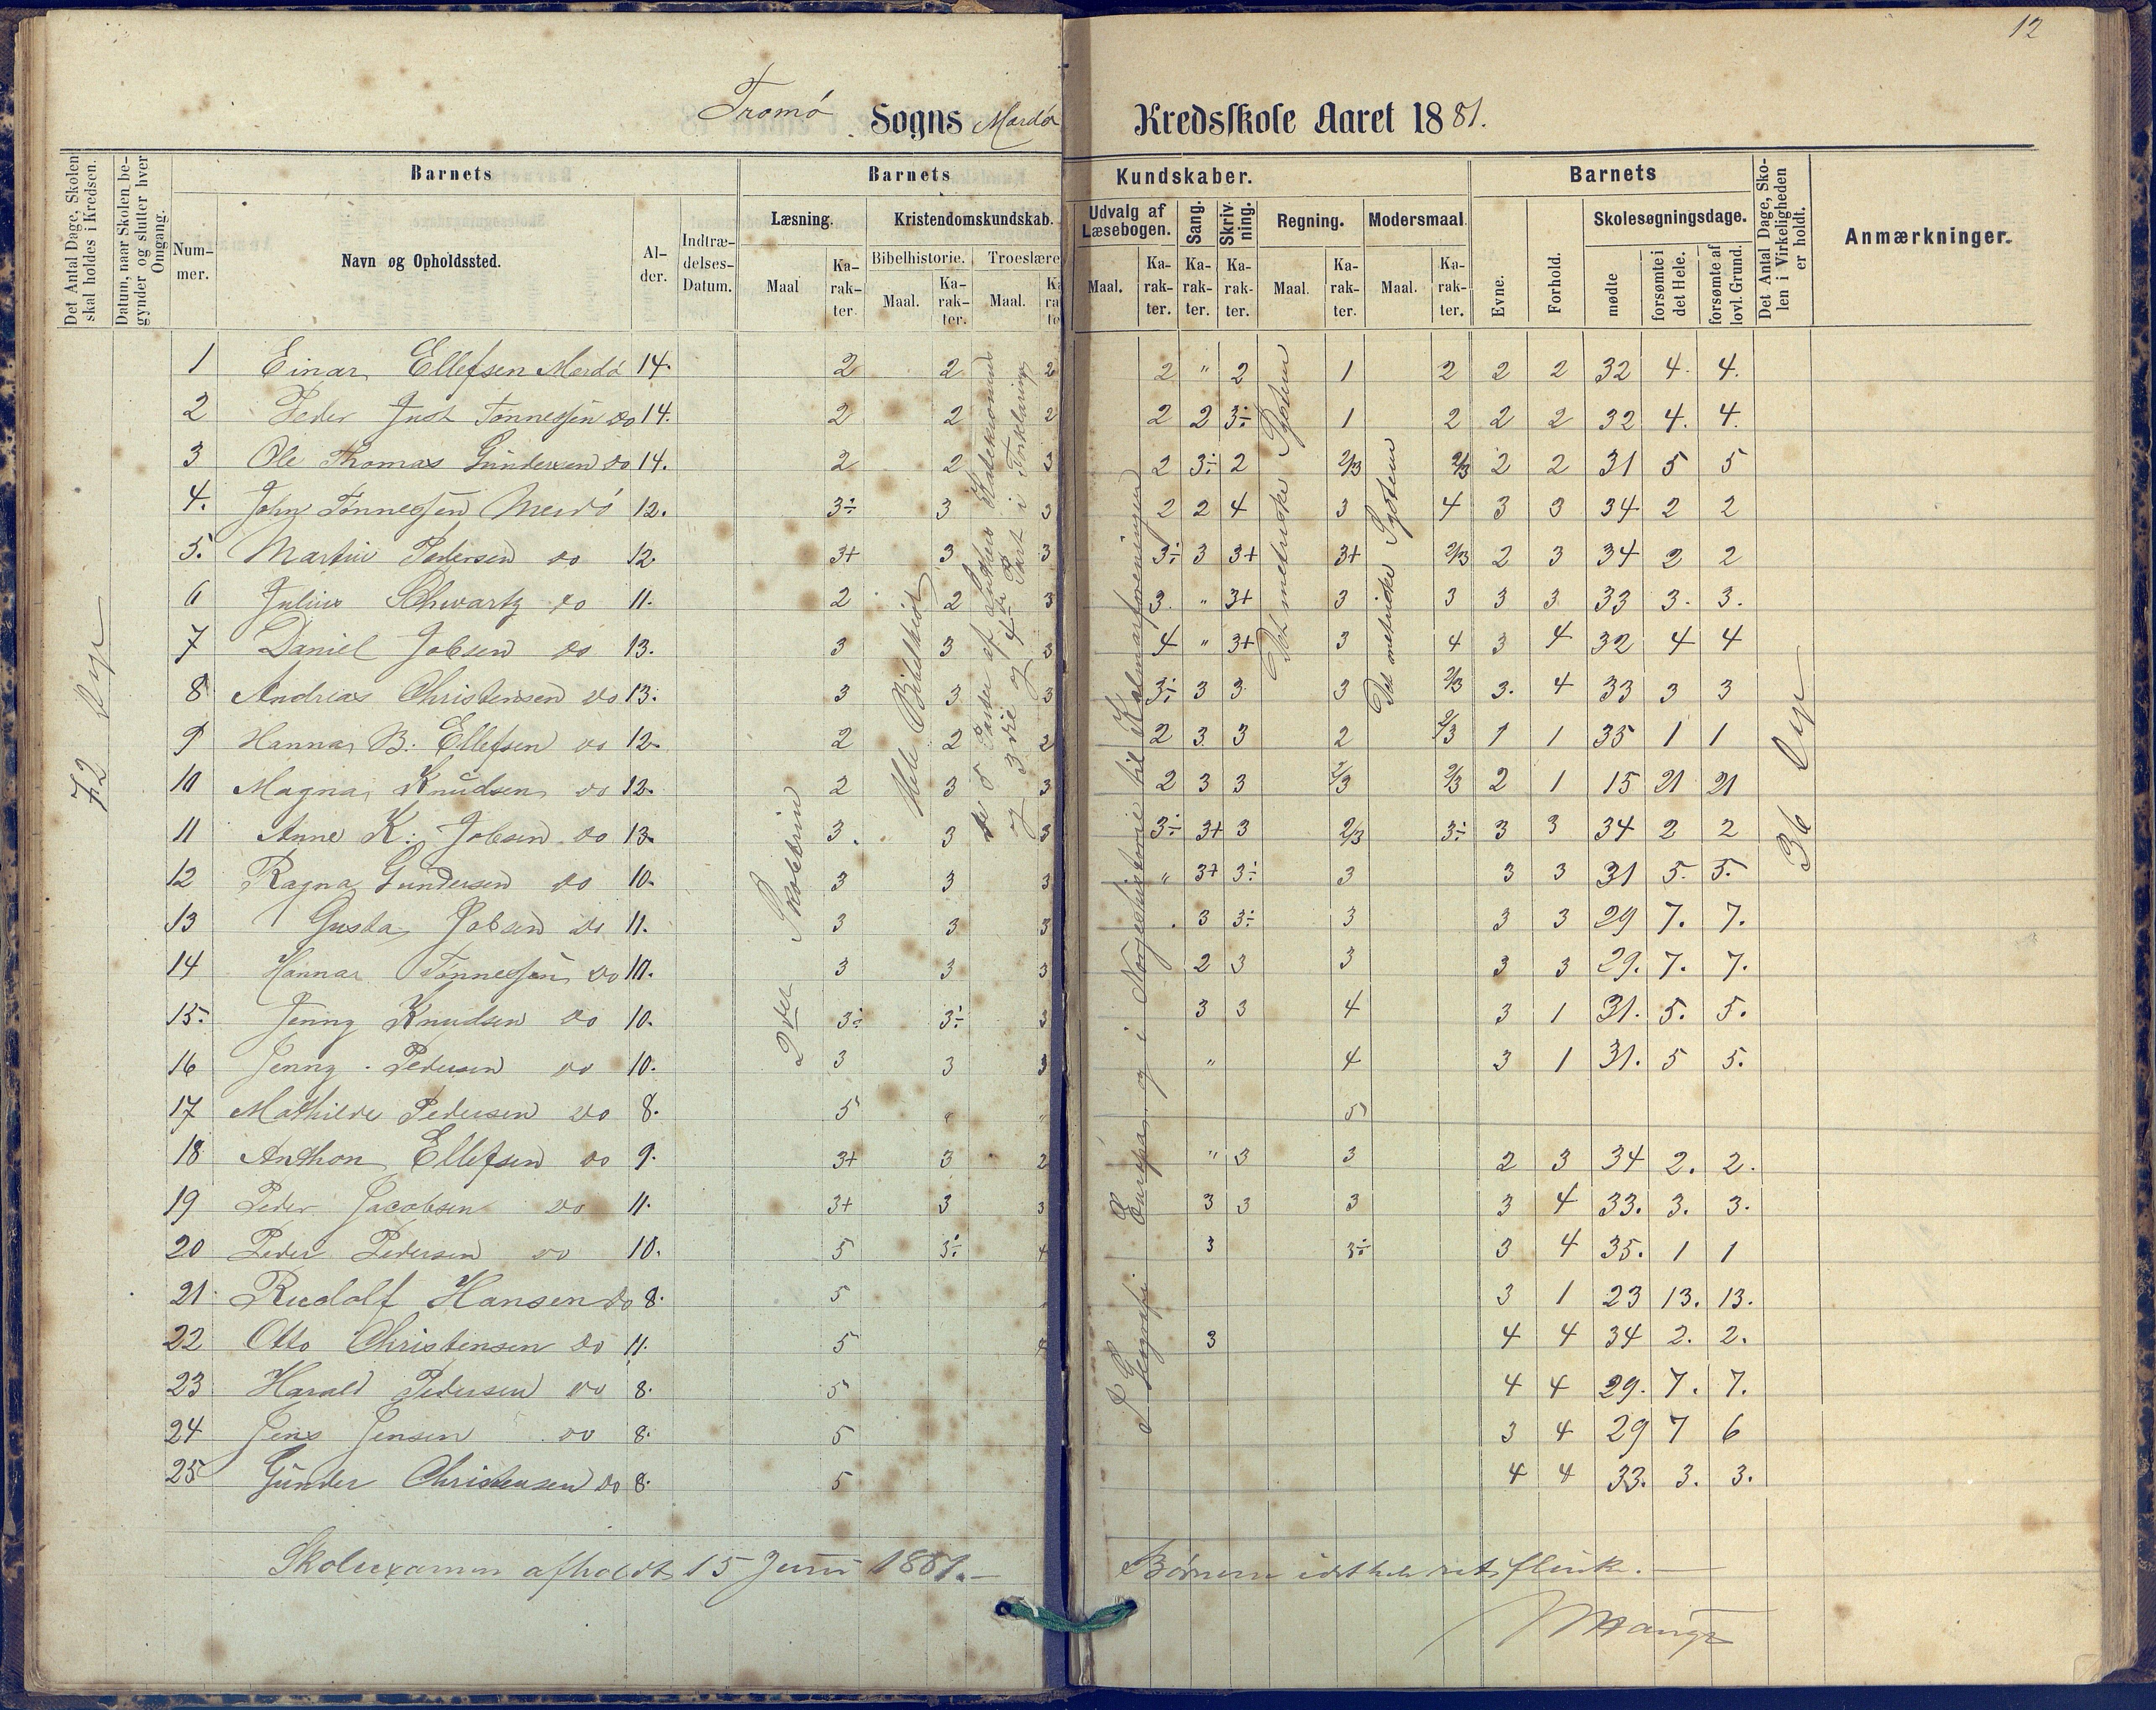 12
Tromö Sogns Merdö Kredsskole Aaret 1881.
Det Antal Dage, Skolen skal holdes i Kredsen.
Datum, naar Skolen begynder og slutter hver Omgang.
Barnets
Barnets Kundskaber.
Barnets
Det Antal Dage, Skolen i Virkeligheden er holdt.
Anmærkninger.
Nummer. Navn og Opholdssted. Alder. Indtrædelses-Datum.
Læsning. Kristendomskundskab. Udvalg af Læsebogen. Sang. Skrivning. Regning. Modersmaal. Evne. Forhold. Skolesøgningsdage.
Bibelhistorie. Troeslære
Maal Karakter. Maal. Karakter. Maal. Maal. Karakter. Karakter. Karakter. Maal. Karakter. Maal. Karakter. mødte forsømte i det Hele. forsømte af lovl. Grund.
1 Einar Ellefsen Merdö 14. 2 2 2 2 " 2 1 2 2 2 32 4. 4.
2 Peder Just Tønnessen do 14. 2 2 2 2 2 3÷ 1 2 2 2 32 4. 4.
3 Ole Thomas Gundersen do 14. 2 2 3 2 3÷ 2 2/3 2/3 2 2 31 5 5
4. John Tønnessen Merdö 12. 3÷ 3 3 2 2 4 3 4 3 3 34 2 2
5. Martin Pedersen do 12. 3+ 3 3 3÷ 3 3+ 3+ 2/3 2 3 34 2 2
6 Julius Schwartz do 11. 2 2 3 3. " 3+ 3 3 3 3 33 3. 3.
7 Daniel Jobsen do 13. 3 3 3 4 " 3+ 3 4 3 4 32 4 4
8 Andreas Christensen do 13. 3 3 3 3÷ 3 3 3 2/3 3. 4 33 3 3
9 Hanna B. Ellefsen do 12. 2 2 2 2 3 3 2 2/3 1 1 35 1 1
10 Magna Knudsen do 12. 2 3 3 2 3 3 2/3 2/3 2 1 15 21 21
11 Anne K. Jobsen do 13. 3. 3 3 3÷ 3+ 3 2/3 3÷ 3 3 34 2 2
12 Ragna Gundersen do 10. 3 3 3 " 3+ 3÷ 3 3 3 31 5. 5.
13 Gusta Jobsen do 11. 3 3 3 3 3÷ 3 3 3 29 7. 7.
14 Hanna Tønnessen do 10. 3 3 3 2 3 3 3 3 29. 7. 7.
15. Jenny Knudsen do 10. 3÷ 3÷ 3 3 3 4 3 1 31. 5. 5.
16 Jenny Pedersen do 10. 3 3 3 " 4 3 1 31. 5 5.
17 Mathilde Pedersen do 8. 5 " " 5
18 Anthon Ellefsen do 9. 3+ 3 2 " 3 3 2 3 34 2. 2.
19 Peder Jacobsen do 11. 3+ 3 3 3 3 3 3 4 33. 3. 3.
20 Peder Pedersen do 10. 5 3÷ 4 3 3÷ 3 4 35. 1 1
21 Rudolf Hansen do 8. 5 3 1 23 13. 13.
22 Otto Christensen do 11. 5 4 3 4 4 34 2. 2.
23 Harald Pedersen do 8. 5 4 4 29. 7. 7.
24 Jens Jensen do 8. 5 3 4 29 7 6
25 Gunder Christensen do 8. 5 4 4 33. 3. 3.
72 Dage
2den Skoletrin
Hele Bibelhist
5 Parter af Luthers Katekismus
og 3die og 4de Part i Forklaring
I Geografi Europa og i Norgeshistorie til Kalmarforeningen
Det metriske System
Det metriske System
36 Dage
Skolexamen afholdt 15 Juni 1881.—
Børnene idethele ret flinke.—